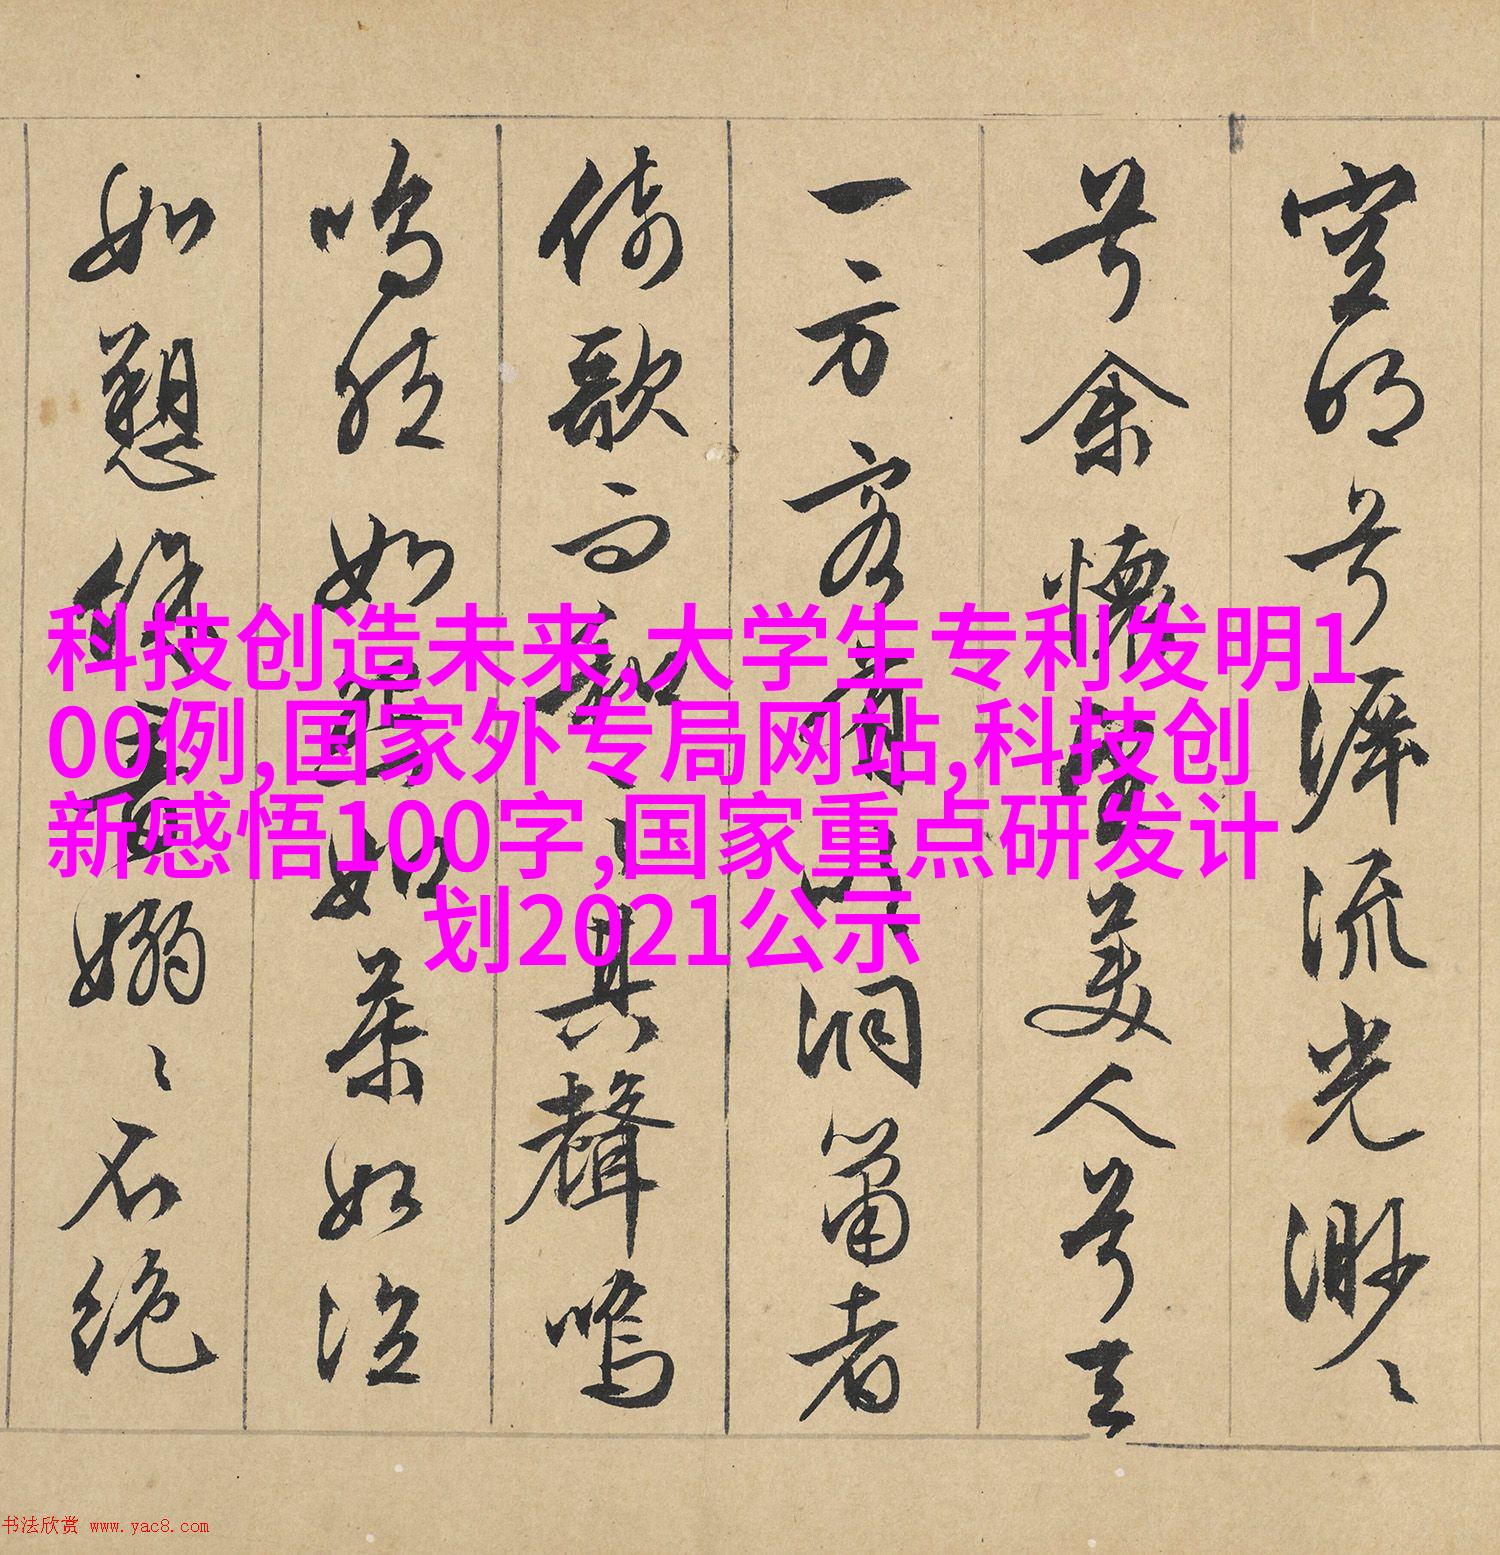 空明兮泝流光渺〻
兮余懷 美人兮天
一方客有 洞簫者
倚歌而和 其聲嗚
嗚然如怨如慕如泣
如愬餘音嫋〻不絕
科技创造未来,大学生专利发明1
00例,国家外专局网站,科技创
新感悟100字,国家重点研发计
划2021公示
书法欣赏 www.yac8.com